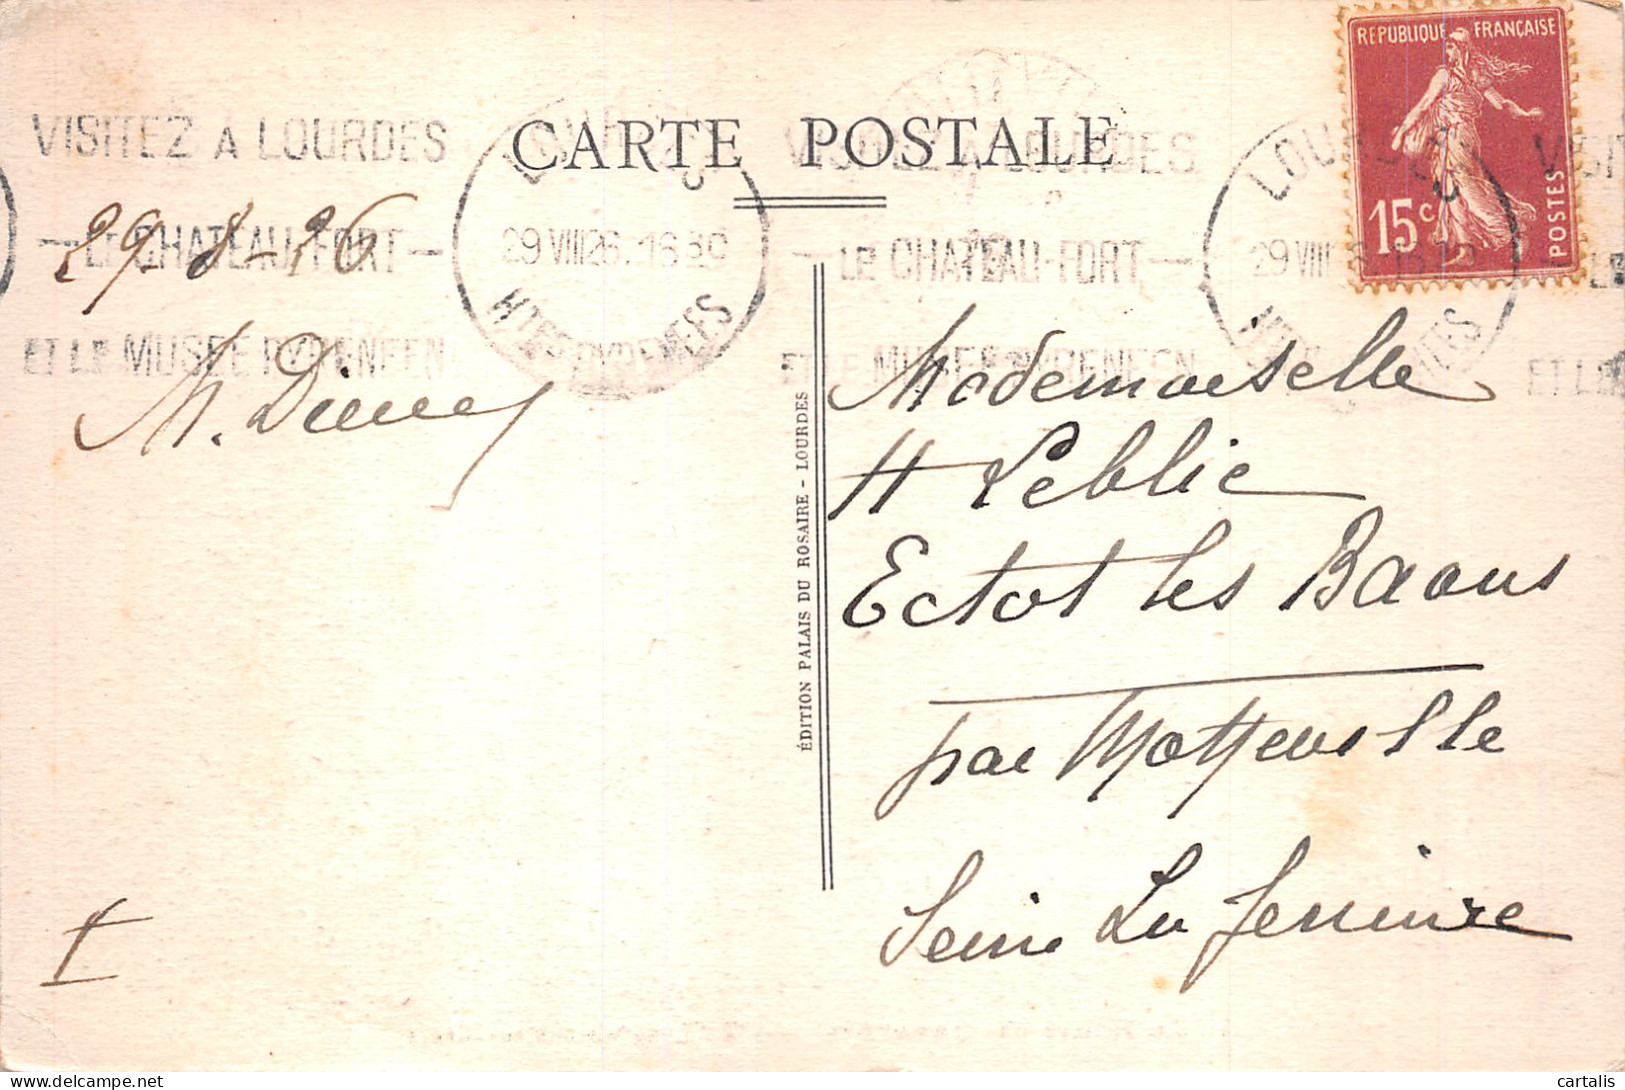 RÉPUBLIQUE FRANÇAISE
15c
POSTES
CARTE POSTALE
VISITEZ A LOURDES
LE CHATEAU-FORT
ET LE MUSEE PYRENEEN
29 VIII 26 16 30
Htes PYRENEES
VISITEZ A LOURDES
LE CHATEAU-FORT
ET LE MUSEE PYRENEEN
LOURDES
29 VIII
Htes PYRENEES
VISIT
ET LE
29-8-26
M.
ÉDITION PALAIS DU ROSAIRE - LOURDES
Mademoiselle
H Leblic
Ectot les Baons
par Motteville
Seine
cartalis